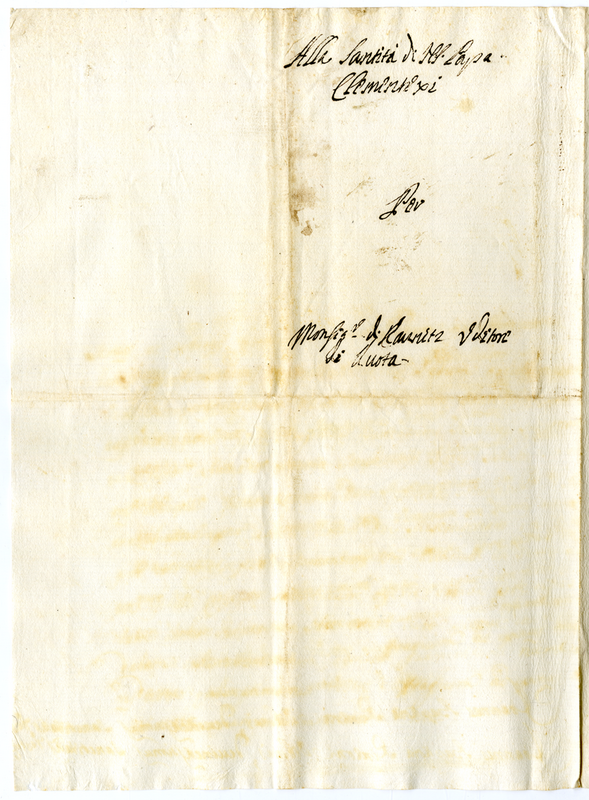 Alla Santità di N.S. Papa
Clemente xi
Per
Monsig.r di Kaunitz Uditore
di Ruota